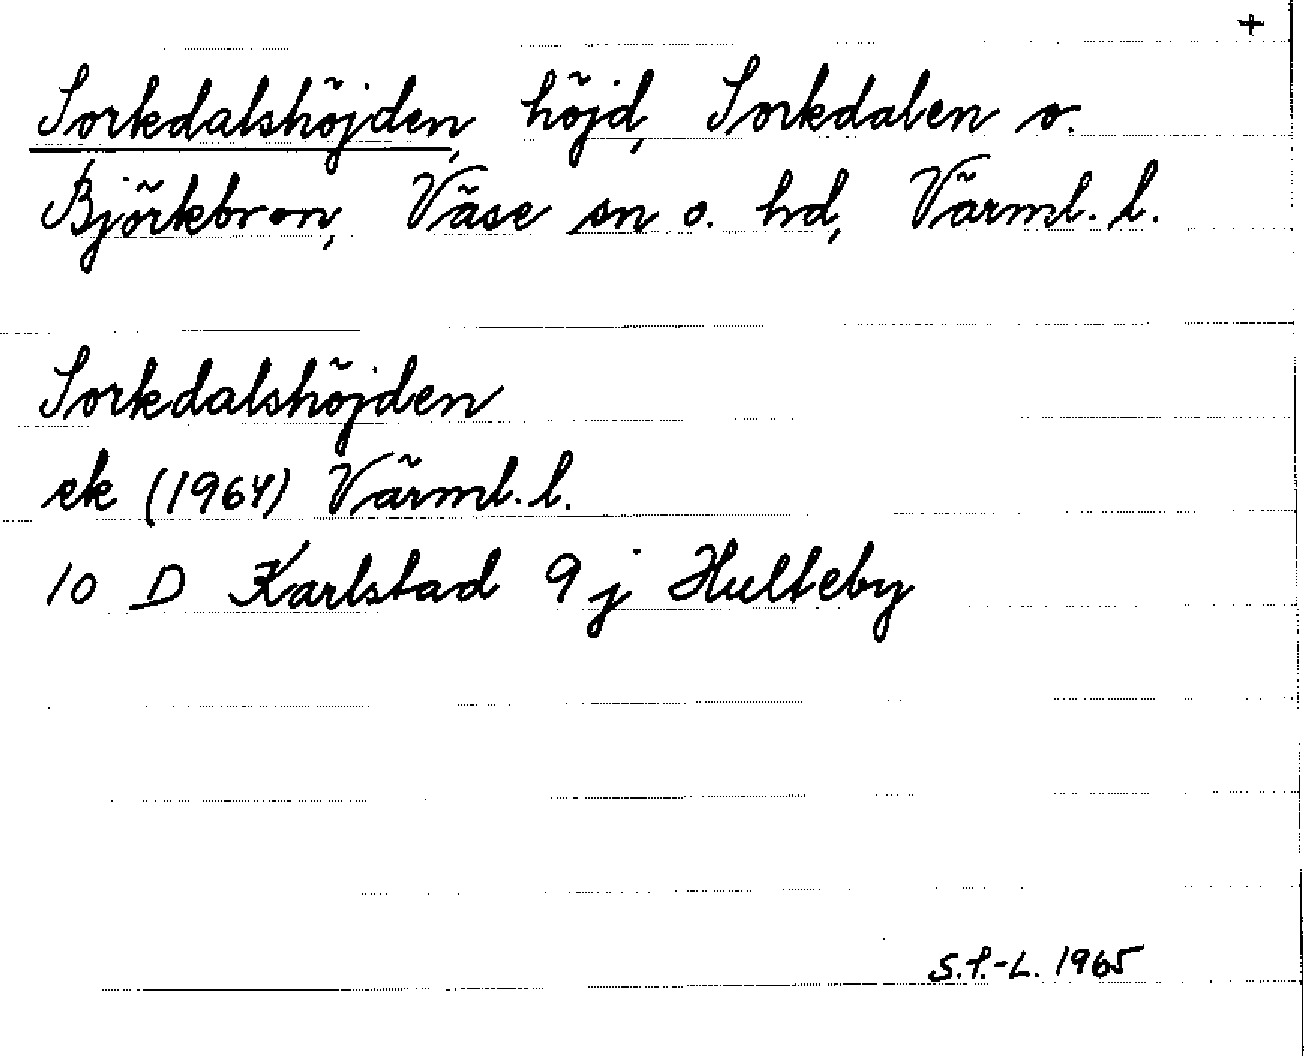 +
Sorkdalshöjden, höjd, Sorkdalen o.
Björkbron, Väse sn o. hd, Värml. l.
Sorkdalshöjden
ek (1964) Värml. l.
10 D Karlstad 9 j Hulteby
S.P.-L. 1965